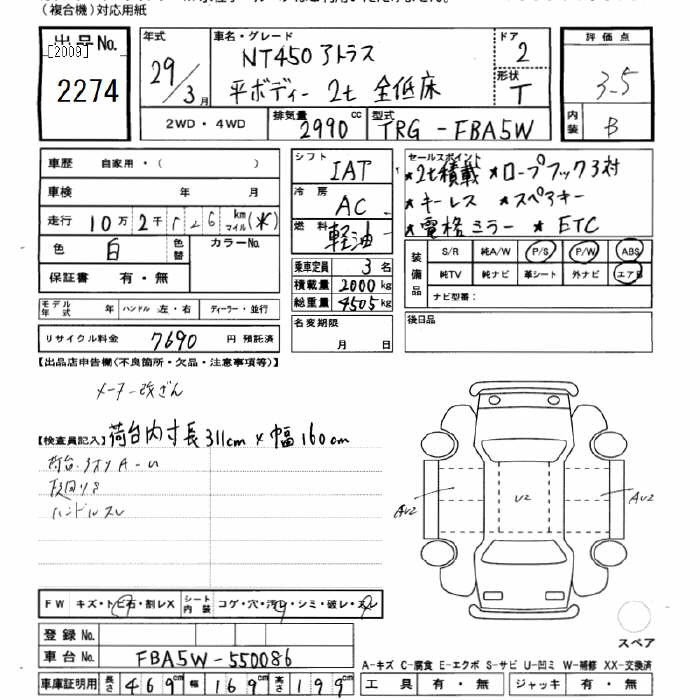 (複合機)対応用紙
出品No.
[2009]
2274
年式
29/3月
車名・グレード
NT450アトラス
平ボディー 2t 全低床
ドア
2
形状
T
評価点
3.5
内装
B
2WD・4WD
排気量
2990cc
型式
TRG-FBA5W
車歴 自家用・( )
車検 年 月
走行 10万2千 26 km マイル(米)
色 白 色替 カラーNo.
保証書 有・無
モデル年式 年 ハンドル 左・右 ディーラー・並行
リサイクル料金 7690 円 預託済
シフト
IAT
冷房
AC
燃料
軽油
乗車定員 3名
積載量 2000kg
総重量 4505kg
名変期限
月 日
セールスポイント
★2t積載 ★ロープフック3対
★キーレス ★スペアキー
★電格ミラー ★ETC
装備品
S/R 純A/W P/S P/W ABS
純TV 純ナビ 革シート 外ナビ エアB
ナビ型番:
後日品
【出品店申告欄(不良箇所・欠品・注意事項等)】
メーター改ざん
【検査員記入】荷台内寸長311cm×幅160cm
荷台
ハンドルスレ
AU2 U2 AU2
スペア
FW キズ・トビ石・割レX シート内装 コゲ・穴・汚レ・シミ・破レ・スレ
登録No.
車台No. FBA5W-550086
車庫証明用 長さ 469 幅 169 高さ 199
A-キズ C-腐食 E-エクボ S-サビ U-凹ミ W-補修 XX-交換済
工具 有・無 ジャッキ 有・無